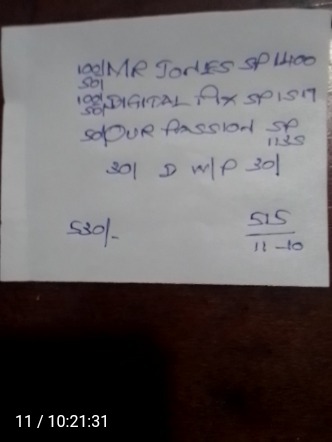 100/ MR JONES SP 1400
50/
100/ DIGITAL FIX SP 1519
50/
50/ OUR PASSION SP
1135
30/ D W/P 30/
530/- 515
11-10
11 / 10:21:31